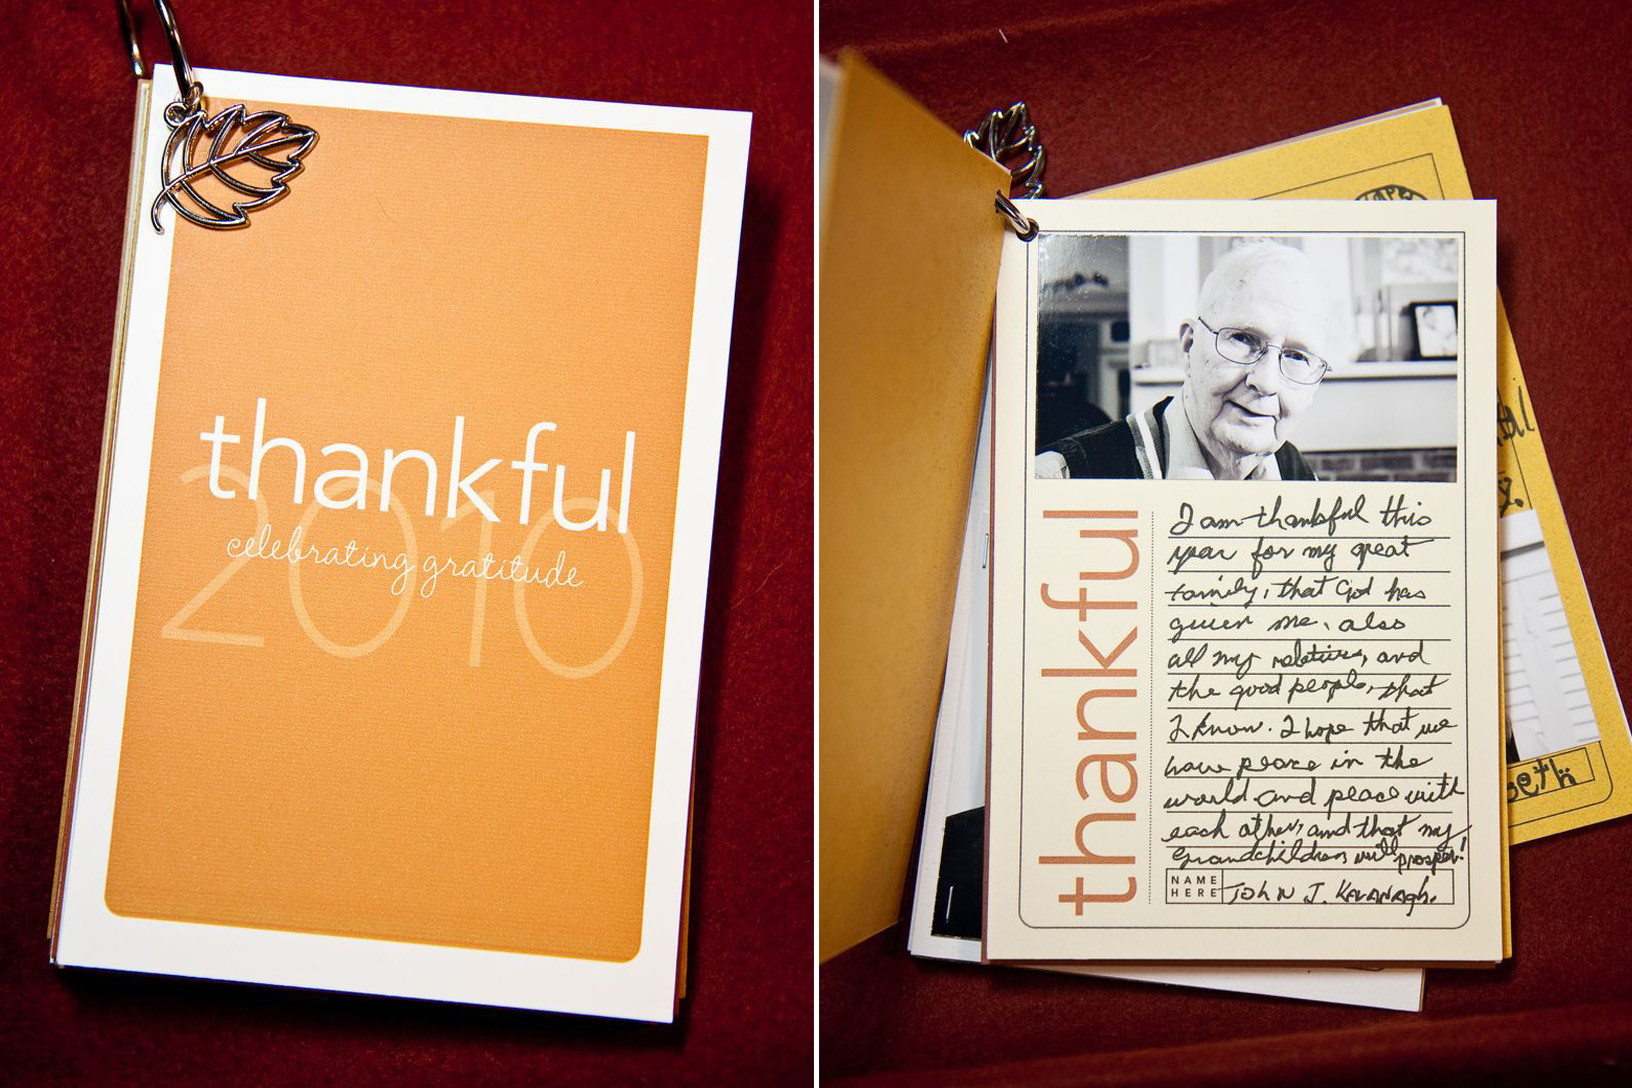 thankful
2010
celebrating gratitude
thankful
I am thankful this
year for my great
family, that God has
given me, also
all my relatives, and
the good people, that
I know. I hope that we
have peace in the
world and peace with
each other, and that my
grandchildren will prosper!
NAME HERE
JOHN J. KAVANAGH.